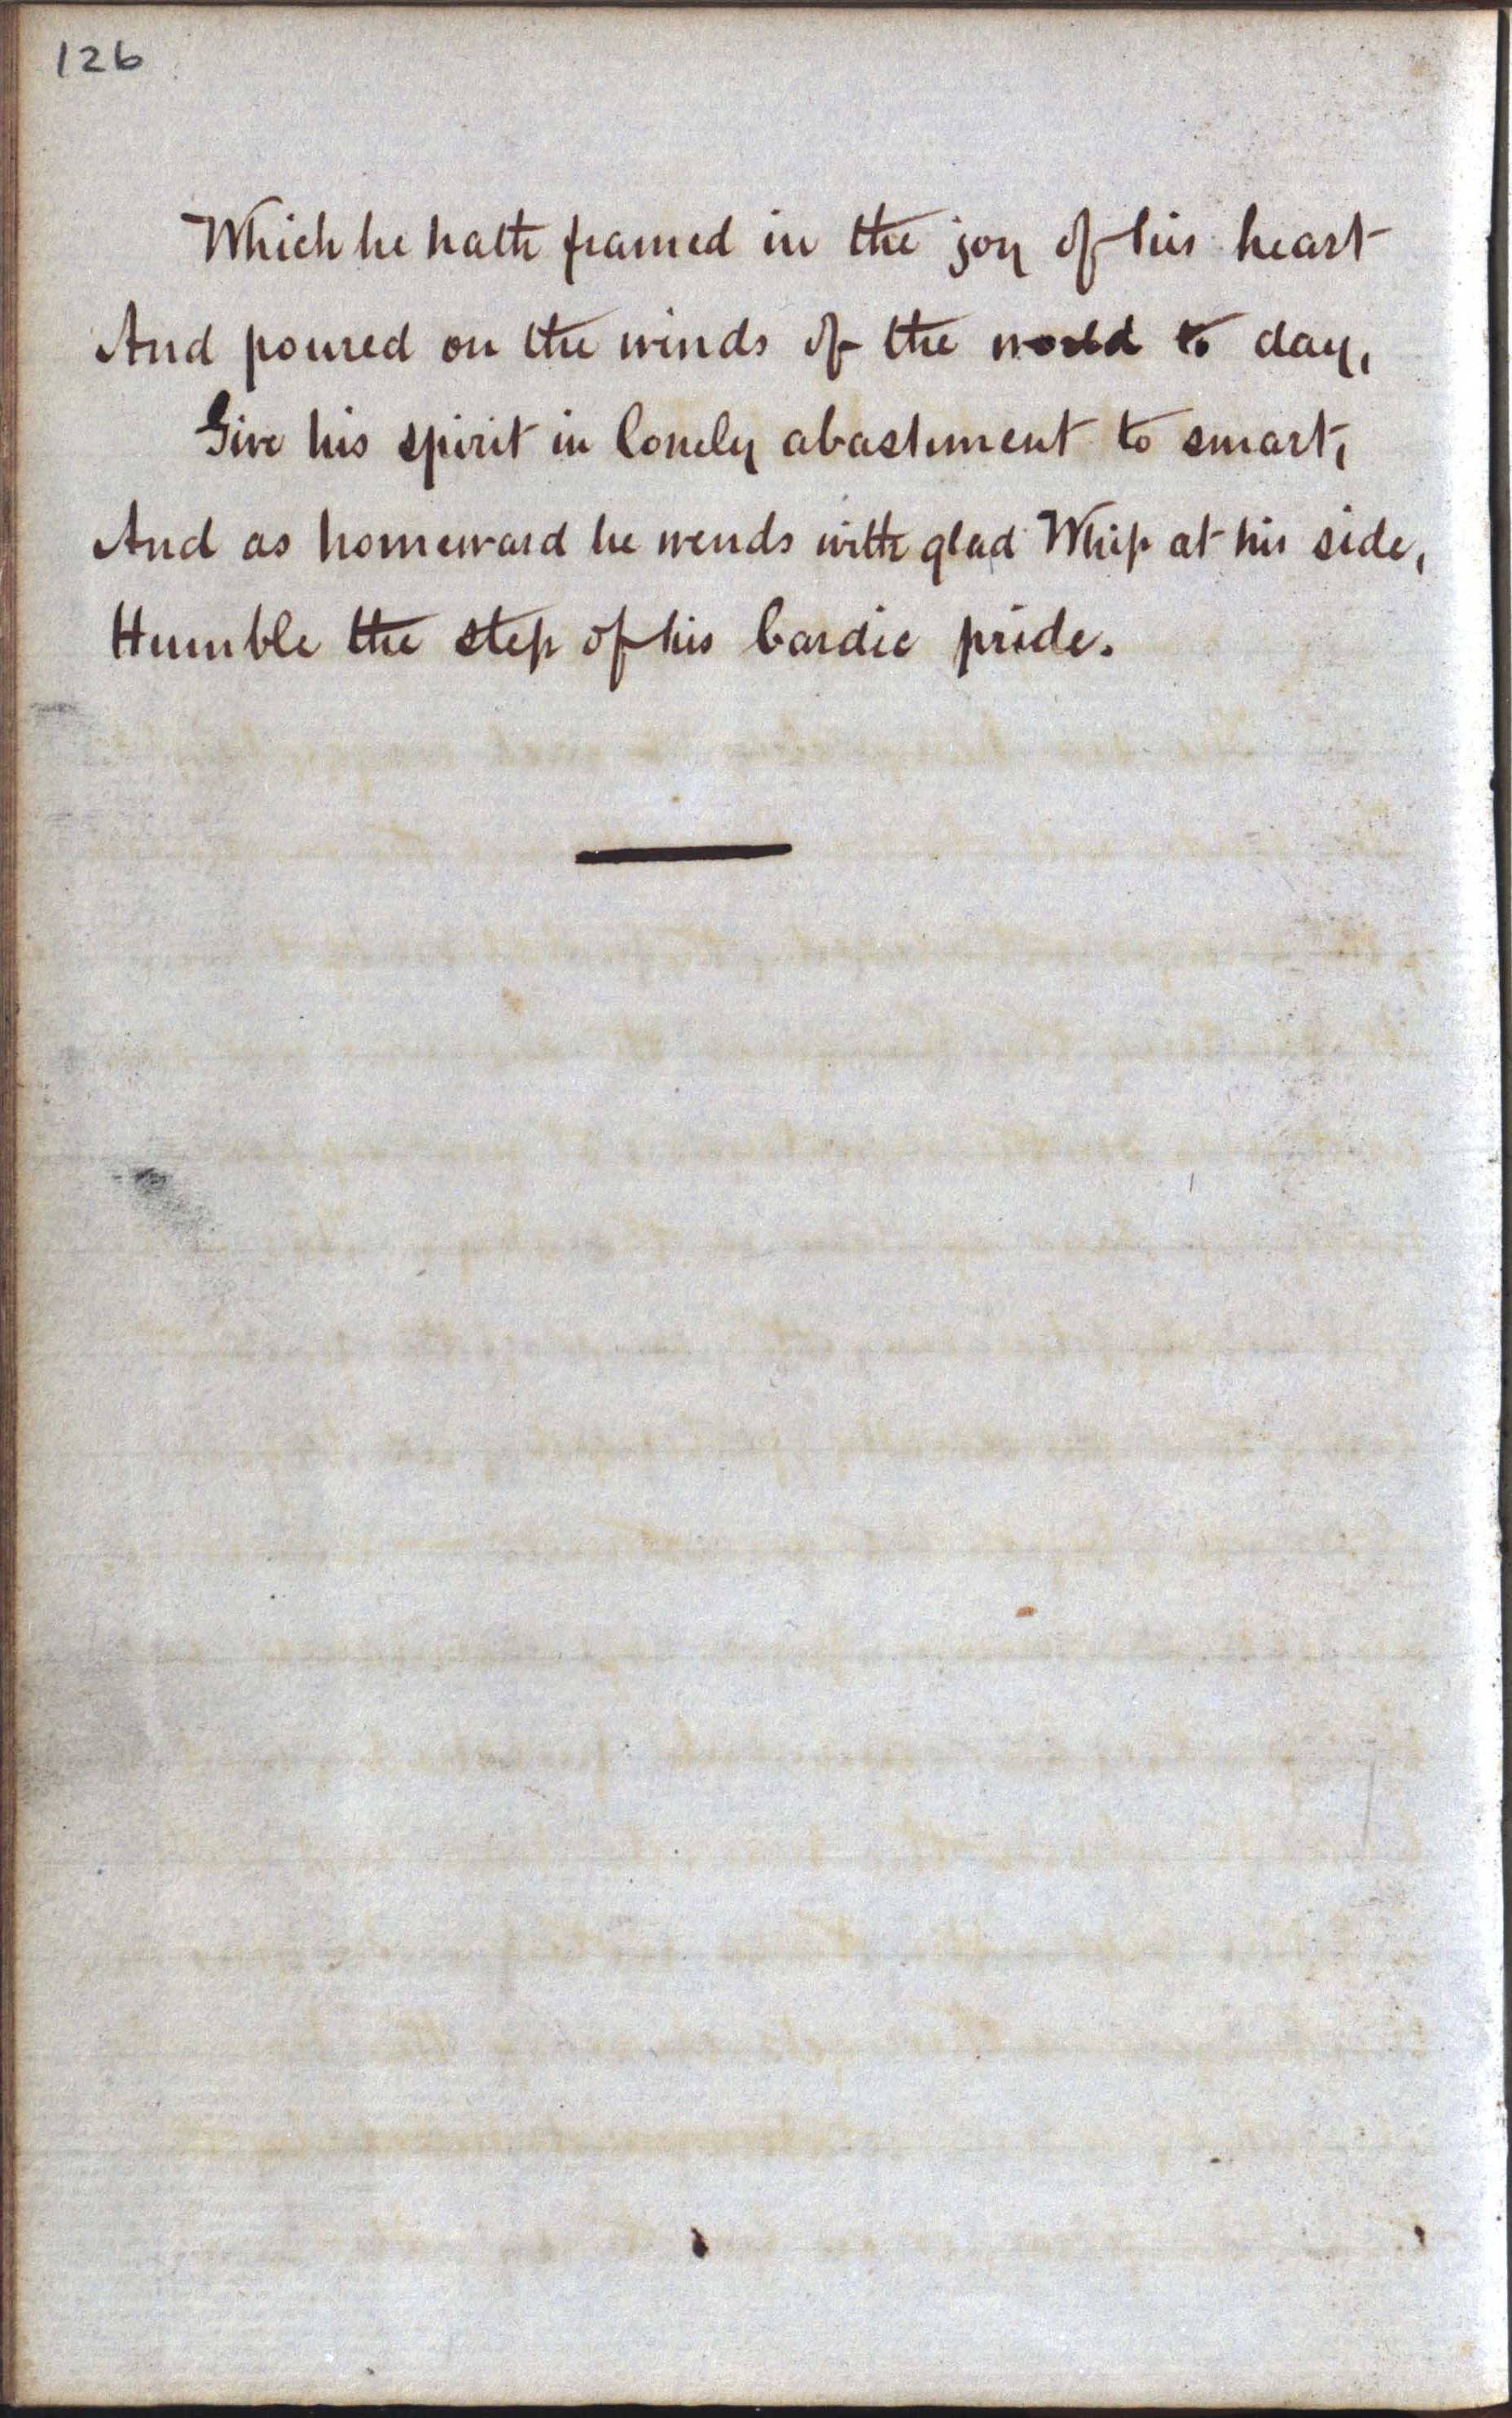 126
Which he hath framed in the joy of his heart
And poured on the winds of the world to day,
Give his spirit in lonely abashment to smart,
And as homeward he wends with glad Whip at his side,
Humble the step of his bardic pride.